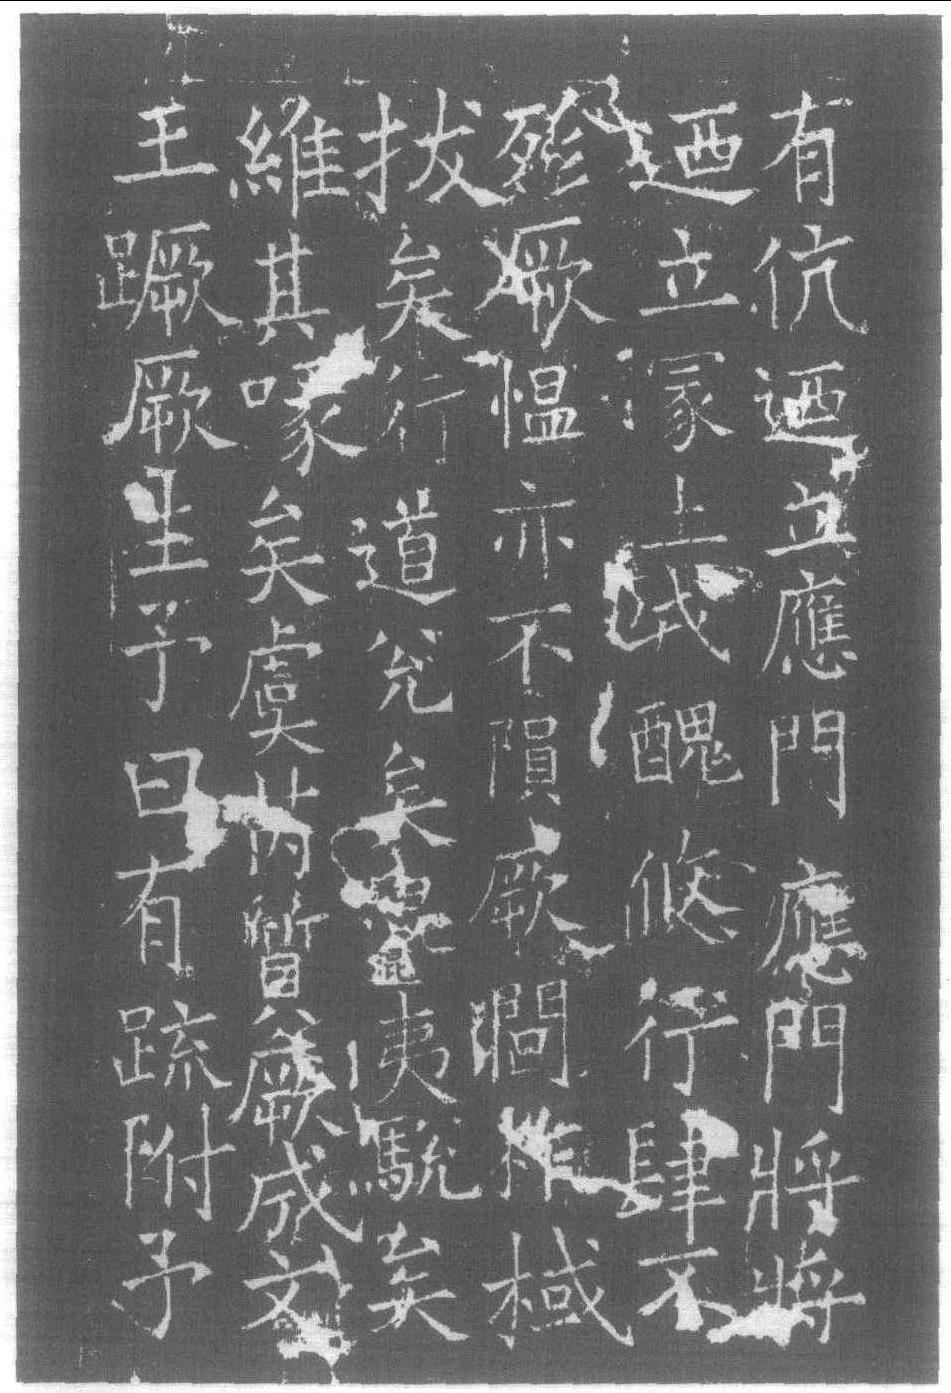 有伉迺立應門應門將將
迺立冢土戎醜攸行肆不
殄厥慍亦不隕厥問柞棫
拔矣行道兌矣混夷駾矣
維其喙矣虞芮質厥成文
王蹶厥生予曰有疏附予